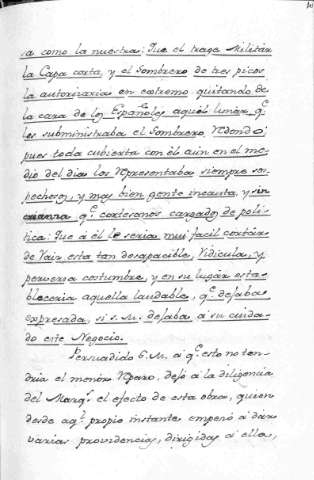 sa como la nuestra: Que el trage Militàr
la Capa corta, y el Sombrero de tres picos
la autorizaria en estremo quitando de
la cara de los Españoles aquèl lunàr, q.e
les subministraba el Sombrero Redondo;
pues toda cubierta con èl aùn en el me-
dio del dia los representaba siempre sos-
pechosos, y mas bien gente incauta, y sin
crianza q.e cortesanos cargados de poli-
tica: Que à èl le seria mui facil cortàr
de raiz esta tan desapacible, ridicula, y
perversa costumbre, y en su lugàr esta-
bleceria aquella laudable, q.e dejaba
expresada, si S. M. dejaba à su cuida-
do este Negocio.
Persuadido S. M. à q.e esto no ten-
dria el menòr reparo, dejò à la diligencia
del Marq.s el efecto de esta obra, quien
desde aq.l propio instante empezò à dàr
varias providencias, dirigidas à ella,